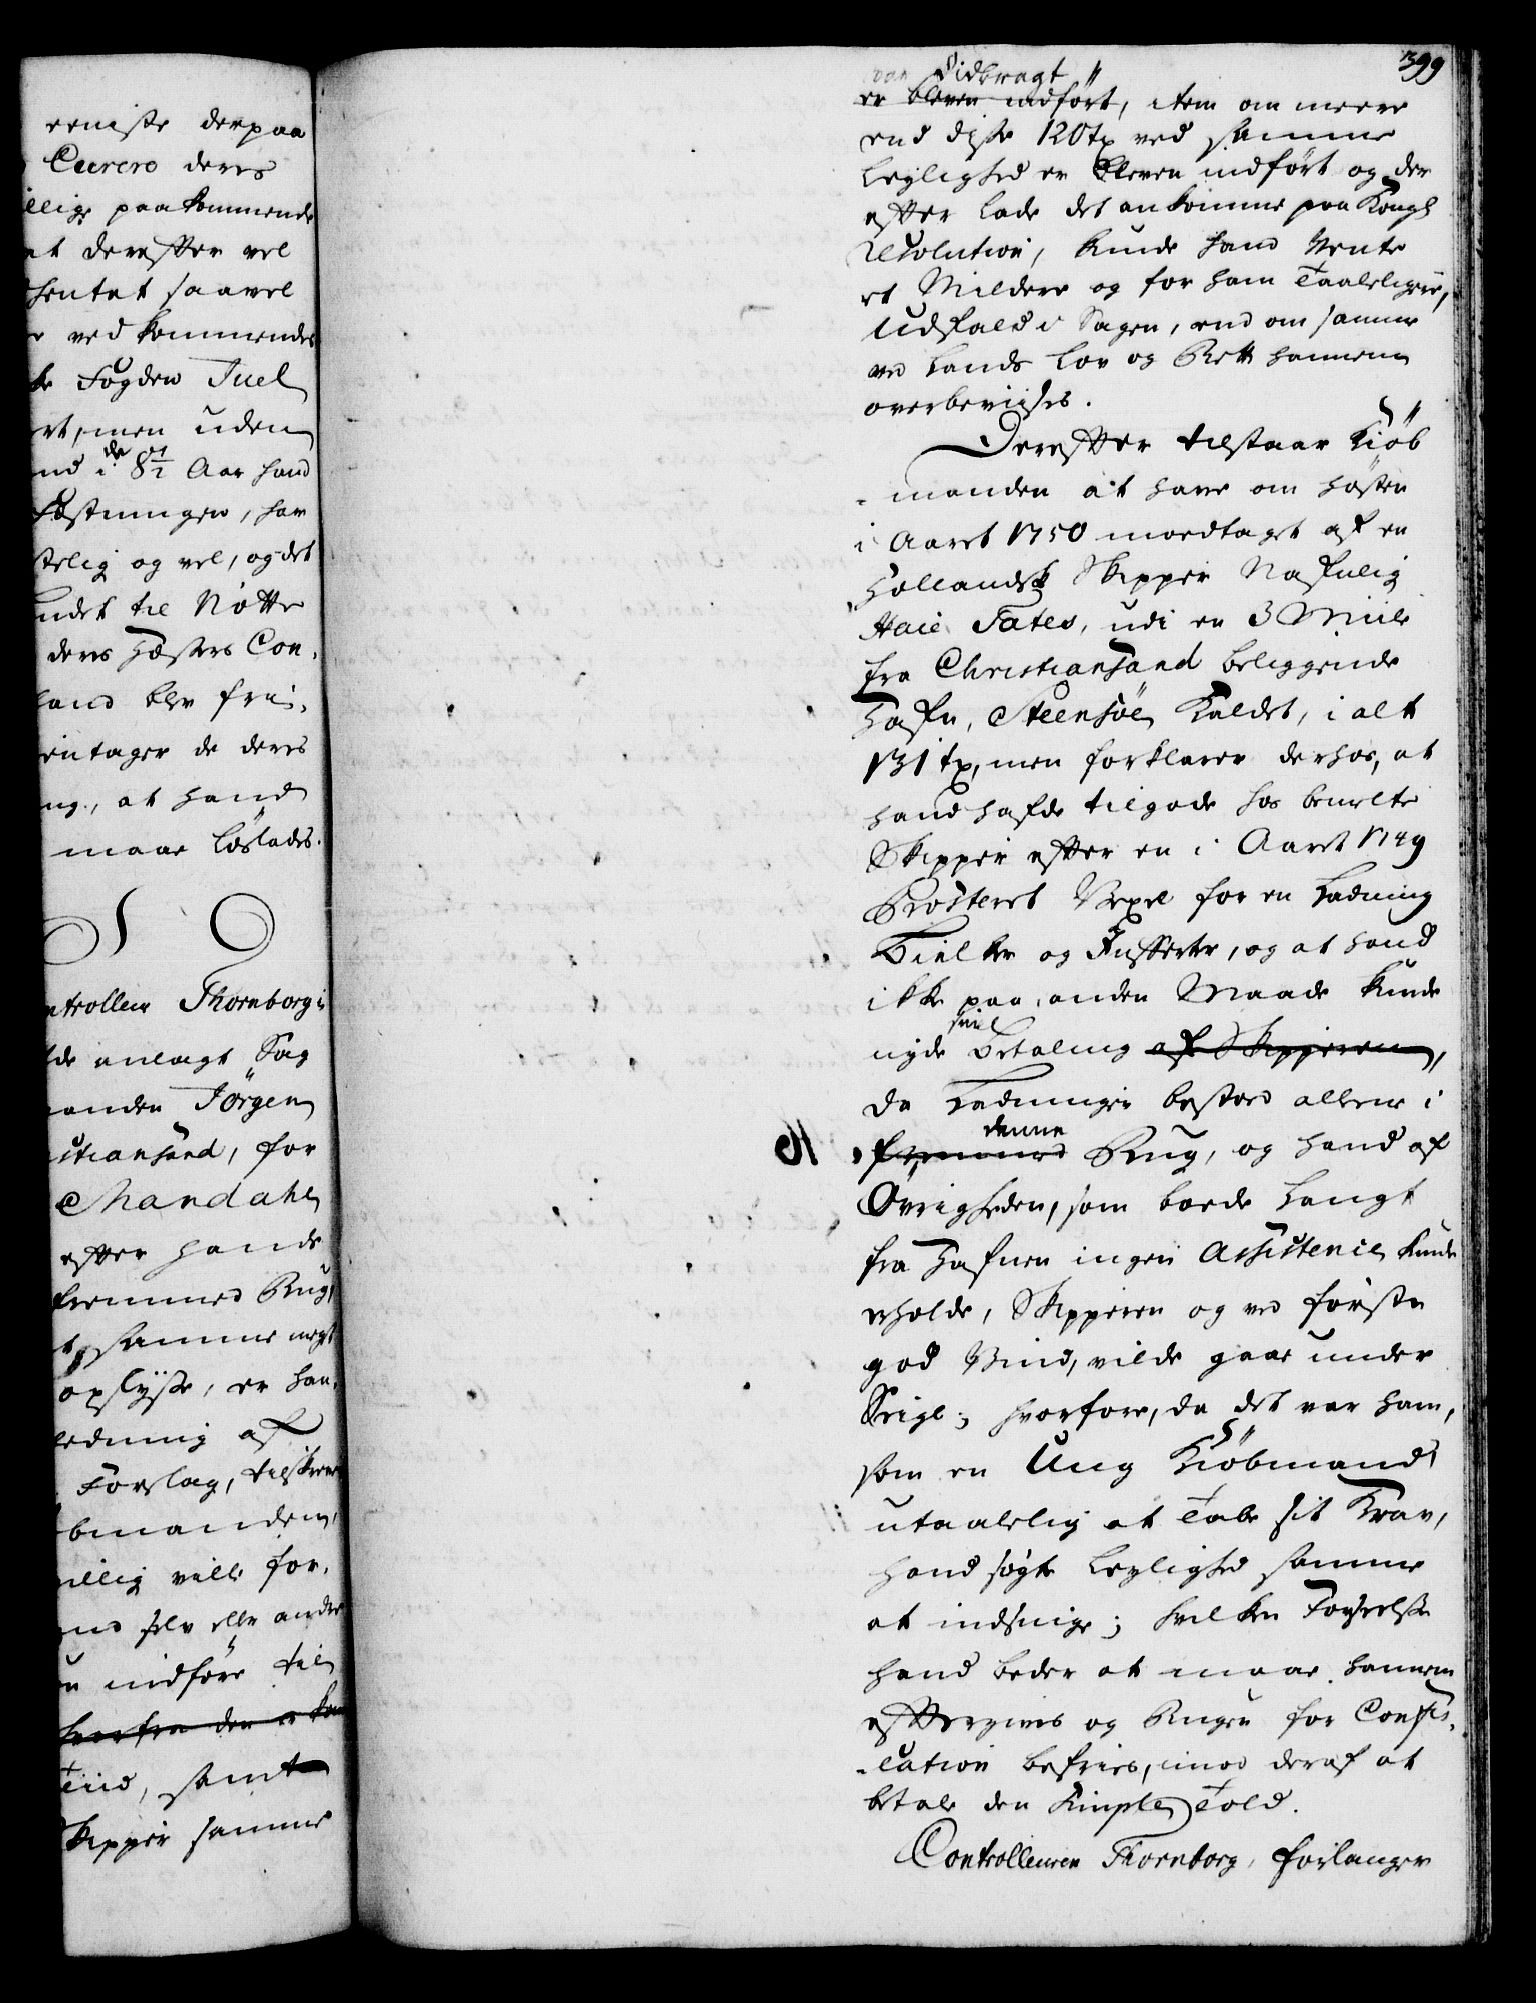 eeniste derpaa
Curere deres
llige paakommende
at derefter vel
hentet saavel
r vedkommende
ke Fogden Juel
rt, men uden
nd i de 8 1/2 Aar hand
Fæstningen, har
stelig og vel, og det
undet til Nøtte
deres Hæsters Con-
land blev frei,
entager de deres
ng, at hand
maae løslades.
ntrolleur Thornborg i
de anlagt Sag
anden Jørgen
istiansand, for
Mandahl
efter hands
fremmed Rug,
t samme negt
oplyse, er han
ledning af
Forslag, tilskreve
bmanden,
villig ville for-
and selv eller andre
indføre til
hvorfra den er kom
Tiid, samt
Skipper samme
399
var Tidbragt
er bleven indført, item om meere
end disse 120 tr ved samme
Leylighed er bleven indført og der
efter lade det ankomme paa Kongl
Resolution, kunde hand vente
et Mildere og for ham Taaleligere,
Udfald i Sagen, end om samme
ved Lands Lov og Rett hannem
overbeviises.
Derefter tilstaar Kiøb
manden at have om Høsten
i Aaret 1750 modtaget af en
Hollandsk Skipper Nafnlig
Haie Tates, udi en 3 Miile
fra Christiansand beliggende
Hafn, Steensøe kaldet, i alt
131 tr, men forklarer derhos, at
hand hafde tilgode hos bemelte
Skipper efter en i Aaret 1749
Prosteret Vexel for en Ladning
Bielker og Jufferter, og at hand
ikke paa anden Maade kunde
nyde sin Betaling af Skipperen,
da Ladningen bestoed alleene i
fremmed denne Rug, og hand af
Øvrigheden, som boede Langt
fra Hafnen ingen Assistence kunde
erholde, Skipperen og ved første
god Vind, vilde gaae under
Seigl; hvorfore, da det var ham,
som en Ung Kiøbmand
utaalelig at Tabe sit Krav,
hand søgte Leylighed samme
at indsnige; hvilken Forseelse
hand beder at maae hannem
eftergives og Rugen for Confis-
cation befries, imod deraf at
betale den Simple Told.
Controlleuren Thornborg, forlanger